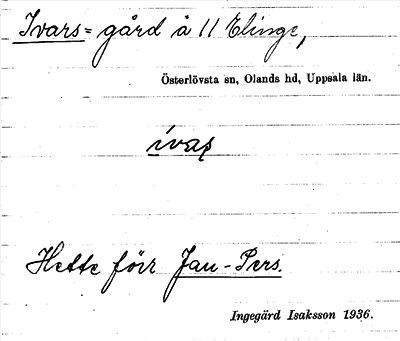 Ivars= gård å 11 Elinge,
Österlövsta sn, Olands hd, Uppsala län.
ivaṣ
Hette förr Jan-Pers.
Ingegärd Isaksson 1936.